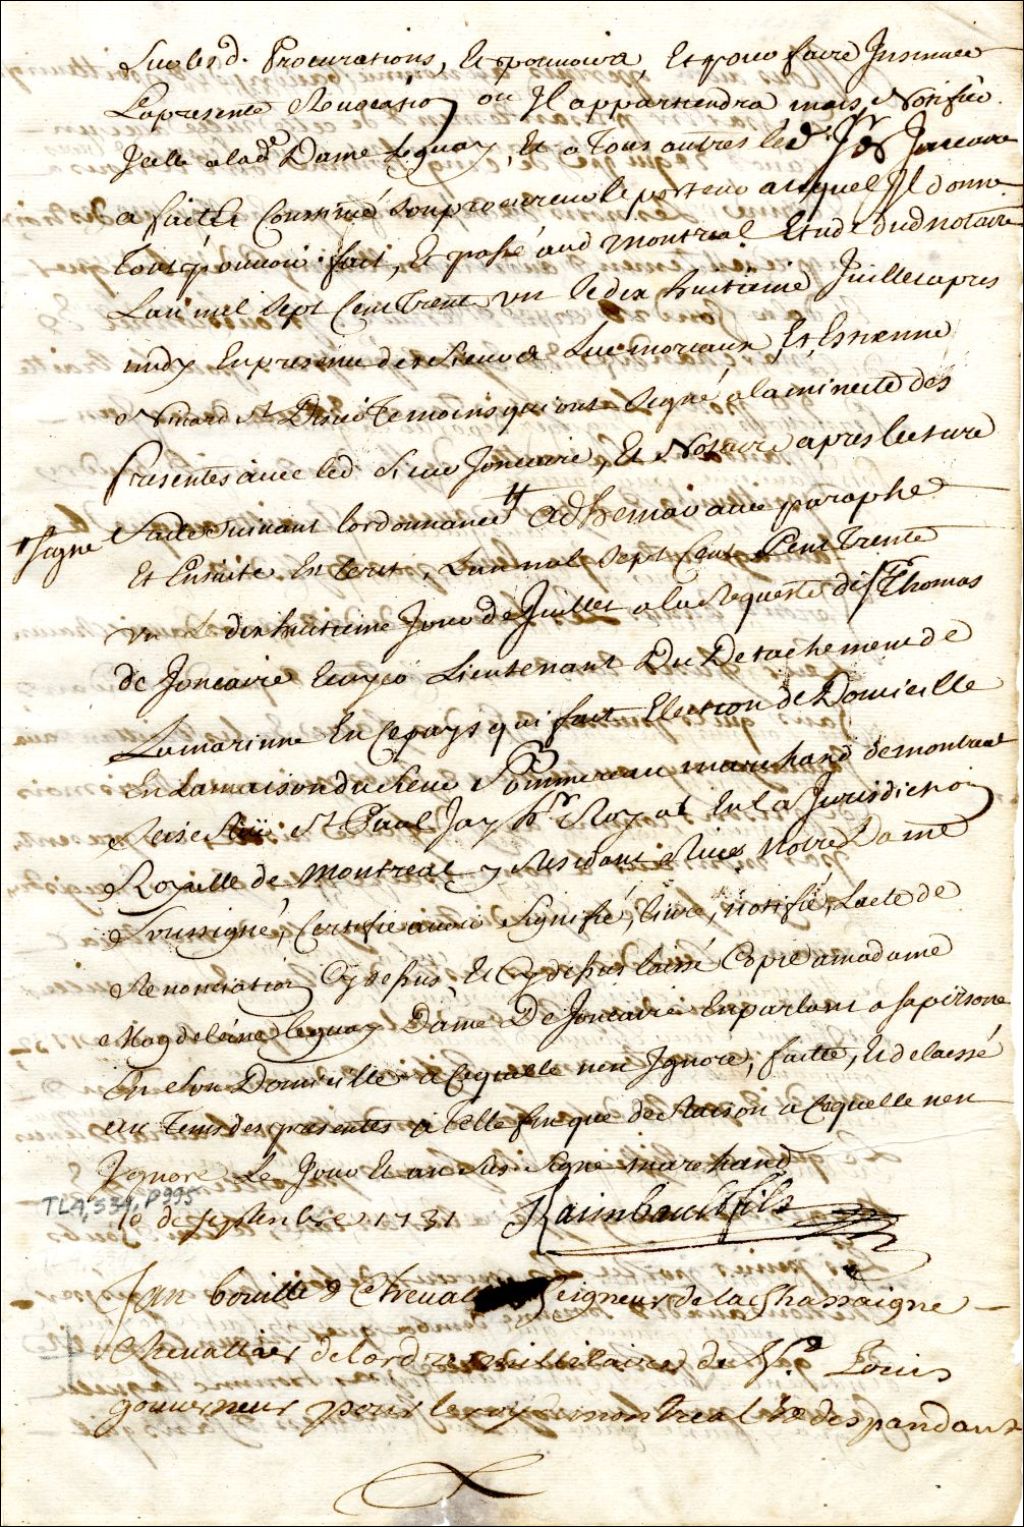 Lesd. Procurations, Et pouvoirs, Et pour faire Insinuer
La presente Revocation ou Il appartiendra mais Notifier
Icelle a lad.e Dame Leguay, Et a Tous autres led. Sr de Joncaire
a fait Et Constitué Son procureur le porteur auquel Il donne
Tout pouvoir fait, Et passé aud montreal Etude dud notaire
Lan mil Sept Cent Trente un Le dix huitieme Juillet apres
midy En presence des Sieurs Luc moreaux Et Estienne
St Disié Temoins qui ont Signé a la minutte des
presentes avec led Sieur Joncaire, Et Notaire apres lecture
faite Suivant lordonnance # adhemar avec paraphe
# Signé
Et Ensuite Est Ecrit, Lan mil Sept Cent Trente
un Le dix huitieme Jour de Juillet a la Requeste du Sr Thomas
de Joncaire Ecuyer Lieutenant Du Detachement de
La marinne En Ce pays qui fait Election de Domicille
En La maison du Sieur Pommereau marchand de montreal
Sise Rüe St Paul Jay hr Royal En la Jurisdiction
Royalle de montreal y Residant Rüe Notre Dame
Soussigné, Certifie avoir Signifié, livré, notifié, Lacte de
Renonciation Cy dessus, Et Cy dessus laissé Copie a madame
Magdeleine leguay Dame De Joncaire En parlant a sa persone
En Son Domicille a Ce quelle nen Ignore, faitte, Et delaissé
au Tems des presentes a Telle fin que de Raison a Ce quelle nen
Ignore Le Jour Et an Sus Signé marchand
TLA, S34, P995
10 de septembre 1731 Raimbault fils
Jan bouillet Cheval Seigneur de la Chassaigne
Chevallier de lordre millitaire de St Louis
gouverneur pour le roy de montreal Et despandans